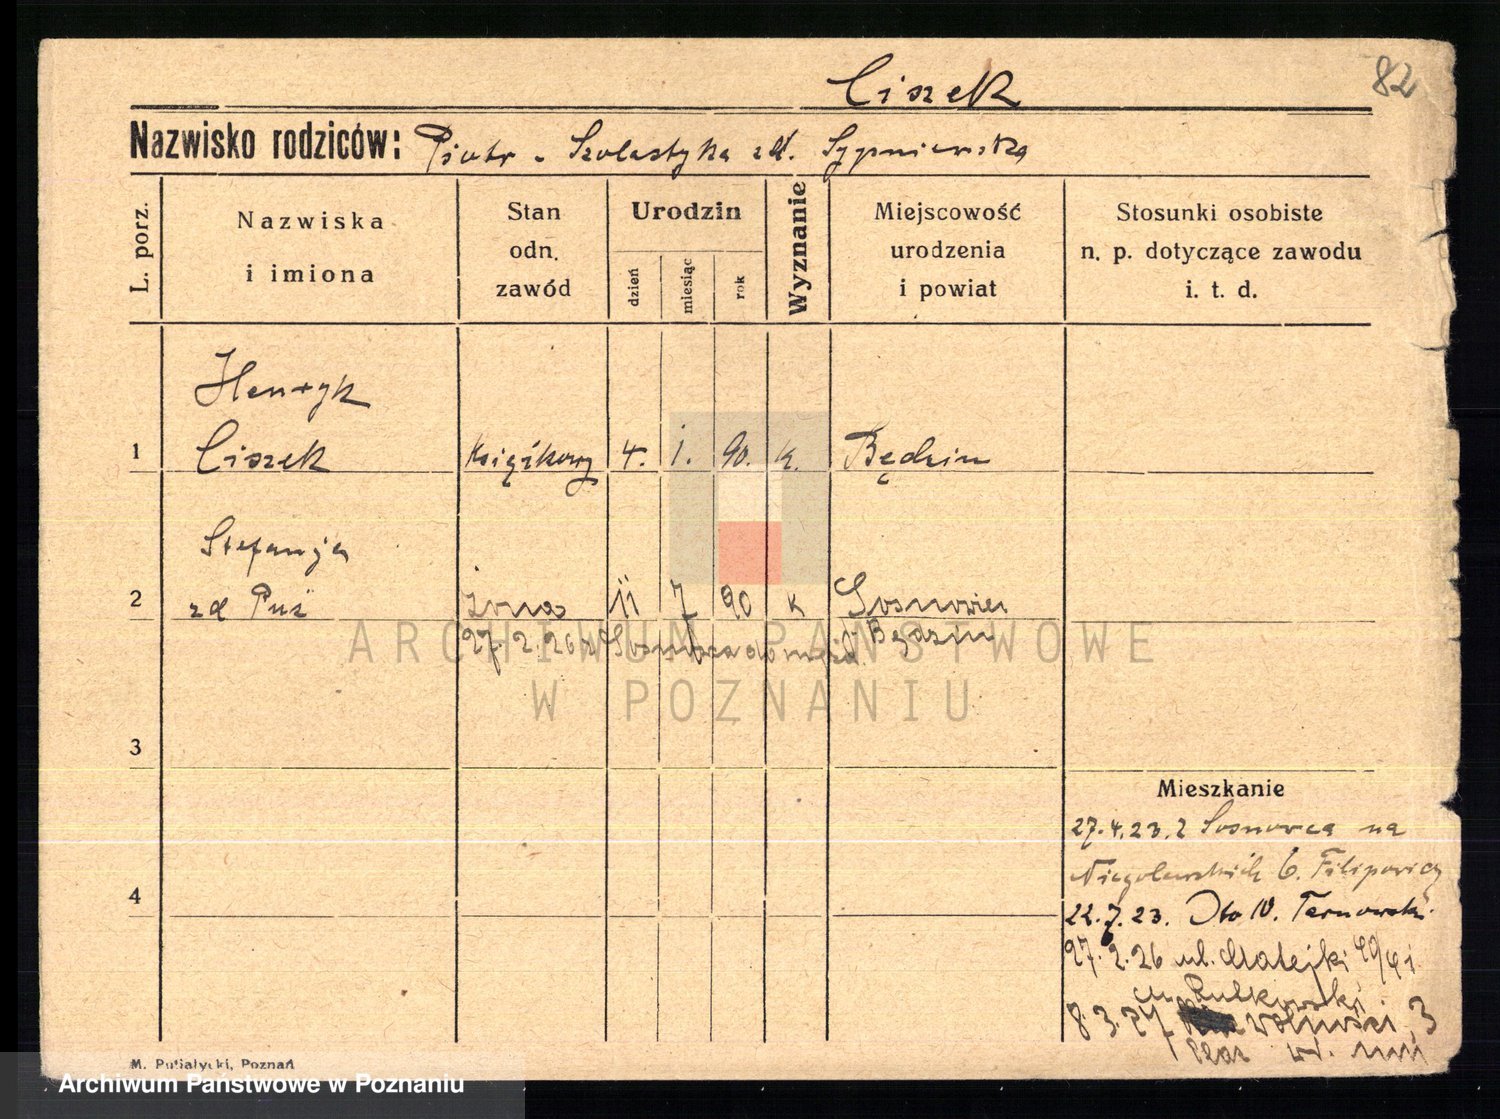 82
Ciszek
Nazwisko rodziców: Piotr - Szolastyka zd. Sypniewska
L. porz.
Nazwiska i imiona
Stan odn. zawód
Urodzin
dzień
miesiąc
rok
Wyznanie
Miejscowość urodzenia i powiat
Stosunki osobiste n. p. dotyczące zawodu i. t. d.
Henryk
1 Ciszek Książkowy 4. 1. 90. k. Będzin
Stefanja
2 zd Puś żona 11 7 90 k Sosnowiec
27.2.26 z Będzin
3
4
Mieszkanie
27.4.23. z Sosnowca na
Niegolewskich 6. Filipowicz
22.7.23. Tarnowski.
27.2.26 ul. Matejki 49/41
Rutkowski
8.3.27 Wolności 3
M. Putiatycki, Poznań
ARCHIWUM PAŃSTWOWE
W POZNANIU
Archiwum Państwowe w Poznaniu